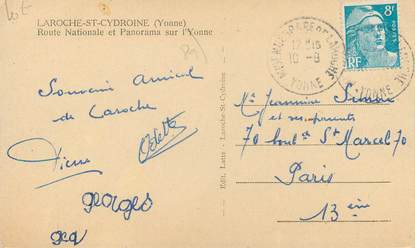 LAROCHE-ST-CYDROINE (Yonne)
Route Nationale et Panorama sur l'Yonne
Souvenir Amical
de Laroche
Odette
Pierre
georges
Edit. Laroche-St-Cydroine
8f
POSTES
RF
12H15
10-9
YONNE
YONNE
Mlle Jeannine
et ses parents
70 bould St Marcel 70
Paris
13 ème